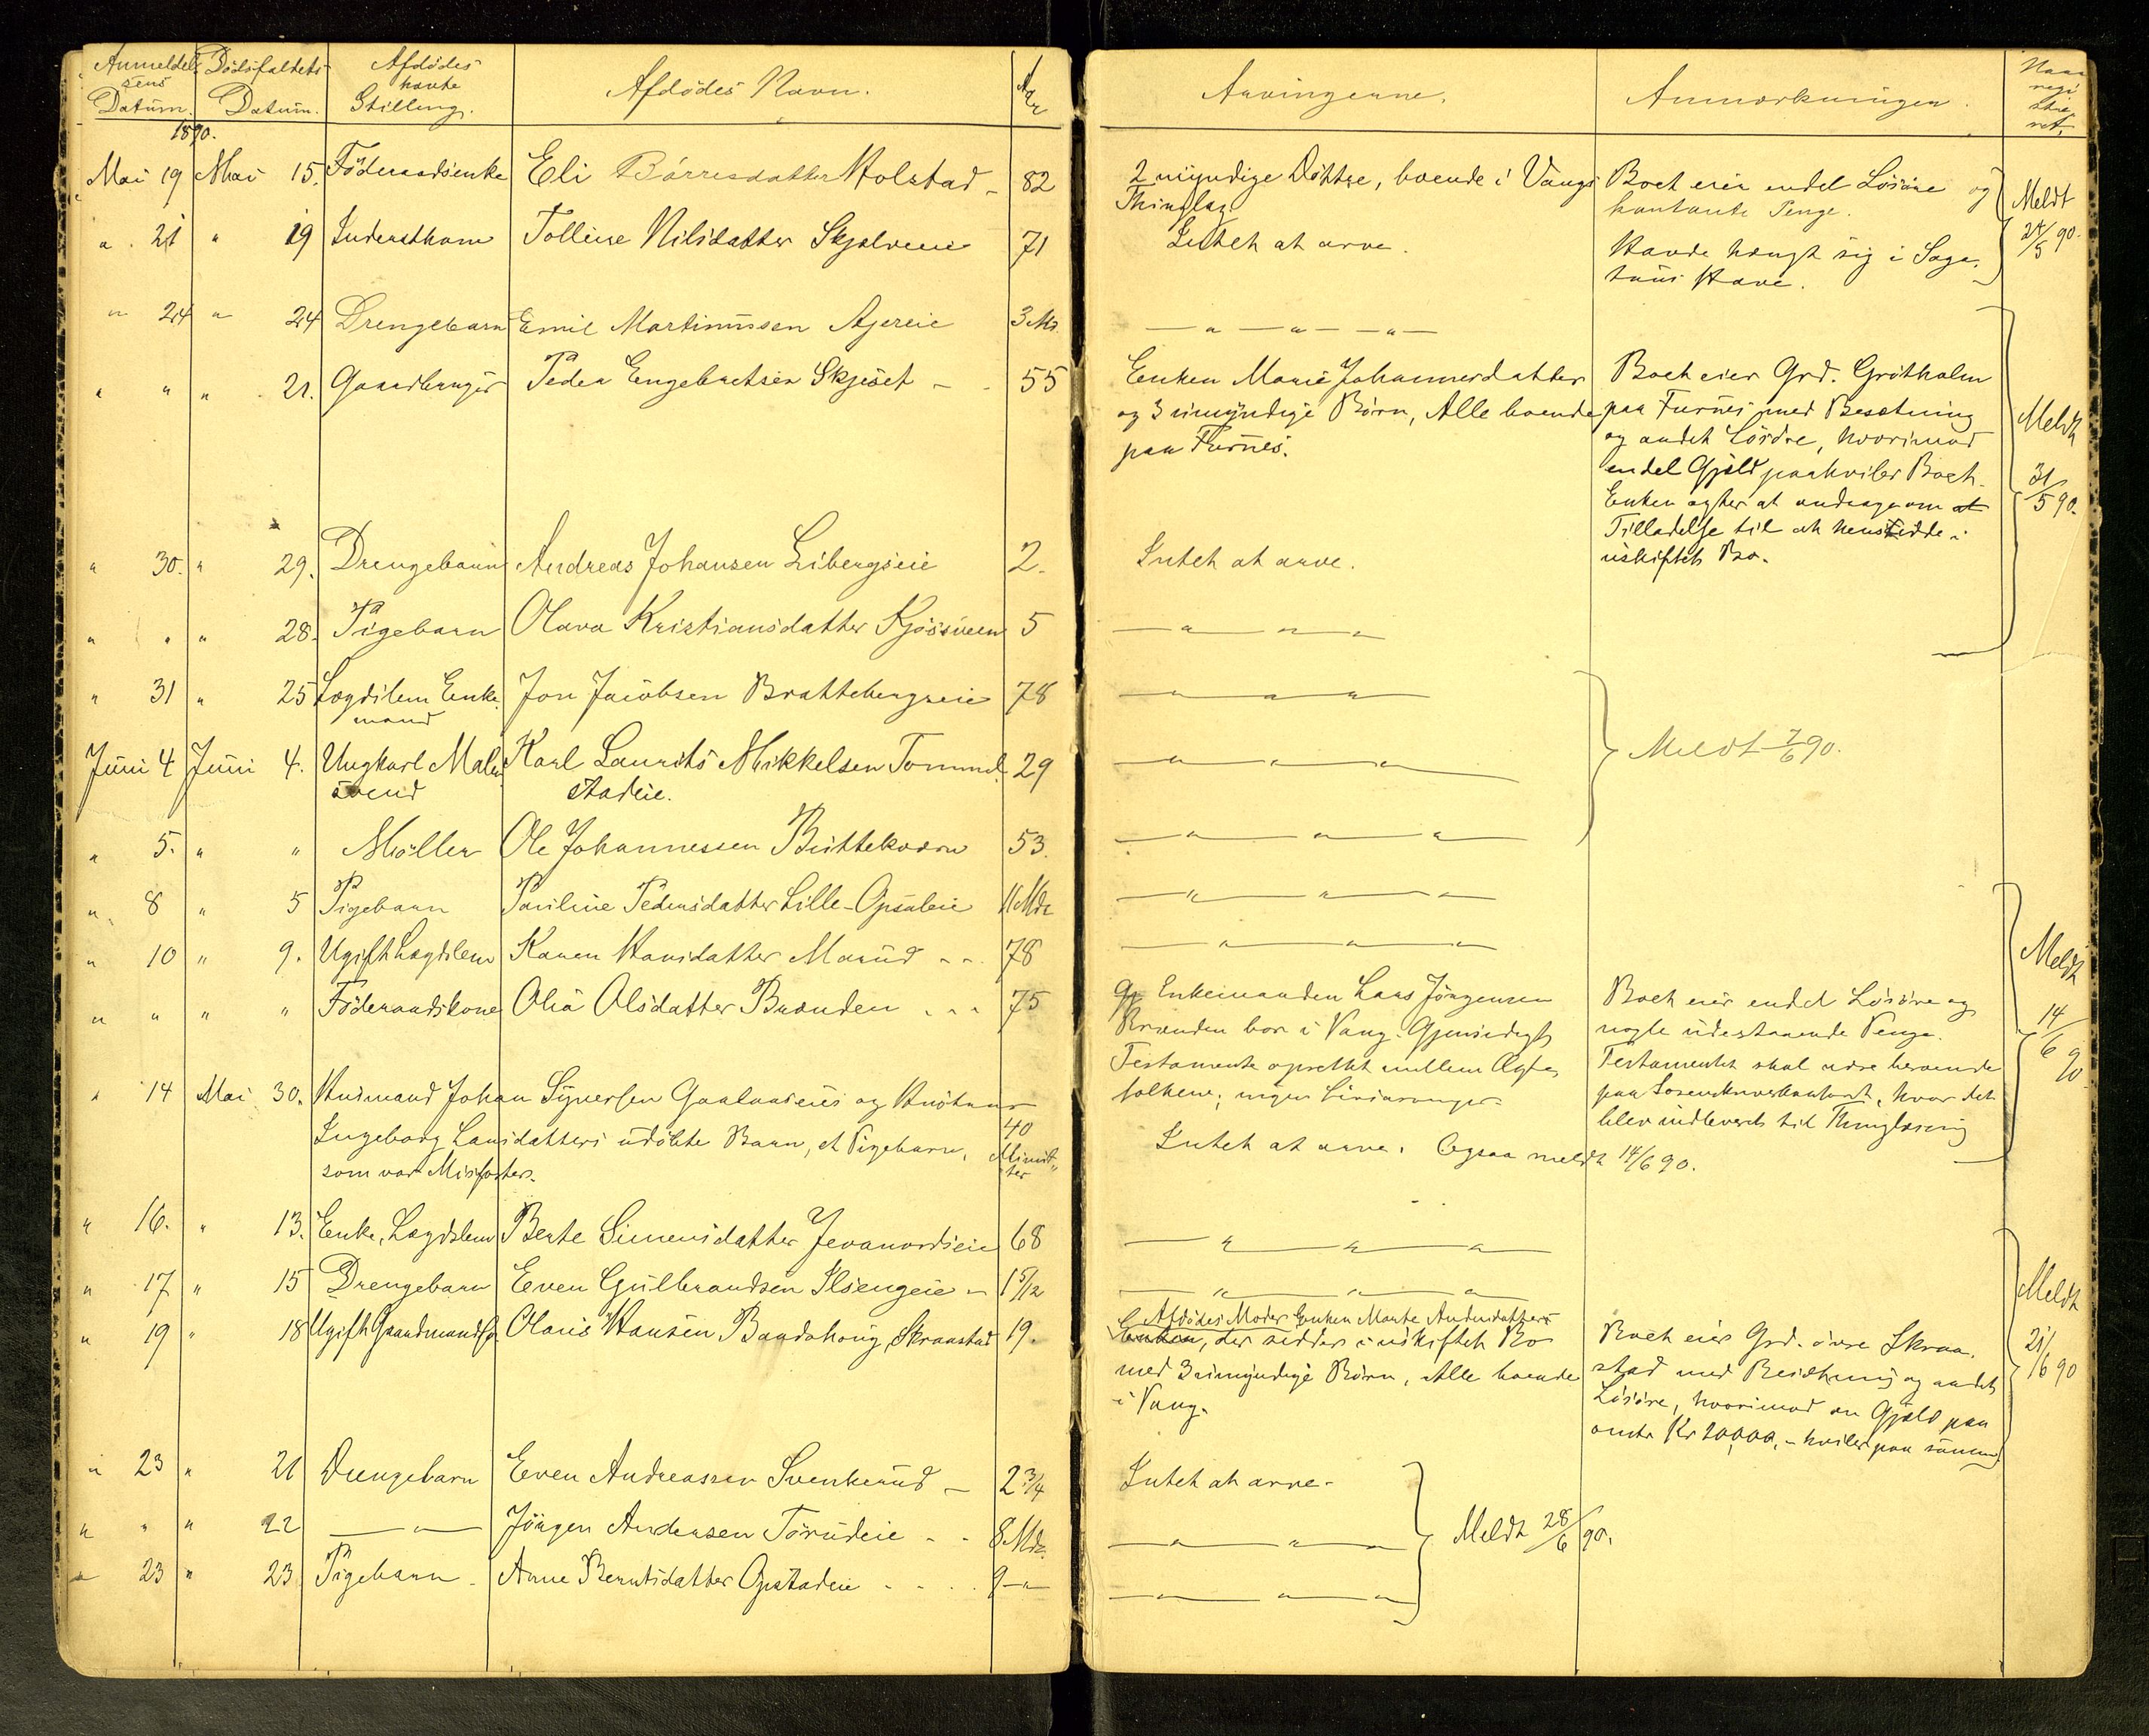 Anmeldel- Dødsfaldets Afdødes Afdødes Navn. Aar Arvingerne. Anmærkninger. Naar
sens havte regi
Datum. Datum. Stilling. stre
ret.
1890.
Mai 19 Mai 15. Föderaadsenke Eli Börresdatter Holstad - 82 2 myndige Döttre, boende i Vangs Boet eier endel Lösöre og Meldt
Thinglag. kontante Penge. 24/5 90.
" 21 " 19 Inderstkone Talline Nilsdatter 71 Intet at arve. Havde hængt sig i Sogs-
tuns Have.
" 24 " 24 Drengebarn Emil Martinussen Ajereie 3 Mr. — " — " — " —
" " " 21. Gaardbruger Peder Engebretsen Skjeset - - 55 Enken Marie Johannesdatter Boet eier Grd. Grötholm
og 3 umyndige Börn, Alle boende paa Furnes med Besætning Meldt
paa Furnes. og andet Lösöre, hvorimod
endel Gjæld paahviler Boet. 31/5 90.
Enken agter at andrage om at
Tilladelse til at hensidde i
uskiftet Bo.
" 30. " 29. Drengebarn Andreas Johansen Libergseie 2. Intet at arve.
" " " 28. Pigebarn Olava Kristiansdatter 5 — " — " — "
" 31 " 25 Lægdslem Enke- Jon Jacobsen Brattebergseie 78 — " — " — " —
mand
Juni 4 Juni 4. Ungkarl Maler- Karl Laurits Mikkelsen Tommel- 29 — " — " — " — Meldt 7/6 90.
svend stadeie.
" 5. " " Möller Ole Johannessen Bittekværn 53. — " — " — " —
" 8 " 5 Pigebarn Pauline Pedersdatter Lille-Opsaleie 11 Mdr — " — " — " —
" 10 " 9. Ugift Lægdslem Karen Hansdatter Marud - - 78 — " — " — " Meldt
" " " " Föderaadskone Olia Olsdatter Brænden - - - 75 Enkemanden Lars Jörgensen Boet eier endel Lösöre og 14/6 90
Brænden bor i Vang. Gjensidigt nogle udestaaende Penge.
Testamente oprettet mellem Ægte- Testamentet skal være beroende
folkene; ingen Livsarvinger. paa Sorenskriverkontoret, hvor det
blev indleveret til Thinglæsning
" 14 Mai 30. Husmand Johan Syversen Gaalaaseie og Hustru
Ingeborg Larsdatters udöbte Barn, et Pigebarn, 40 Intet at arve. Ogsaa meldt 14/6 90.
som var Misfoster. Minut-
ter
" 16. " 13. Enke, Lægdslem Berte Simensdatter Jevanordseie 68 — " — " — " —
" 17 " 15 Drengebarn Even Gulbrandsen Ilsengeie - 1 5/12 — " — " — " — Meldt
Afdödes Moder Enken Marte Andersdatter
" 19 " 18 Ugift Gaardmandss. Olaus Hansen Bandahoug, Skraastad 19. Enken, der sidder i uskiftet Bo Boet eier Grd. övre Skraa- 21/6 90
med 3 umyndige Börn, Alle boende stad med Besætning og andet
i Vang. Lösöre, hvorimod en Gjæld paa
omtr. Kr 20,000,- hviler paa samme
" 23 " 21 Drengebarn Even Andreassen Svenkerud - 2 3/4 Intet at arve.
" " " 22 — " — Jörgen Andersen Torudeie - - 8 Mdr. — " — " — " Meldt 28/6 90.
" 23 " 23 Pigebarn - Anne Berntsdatter Opstadeie - - - - 9 —"— — " — " — "